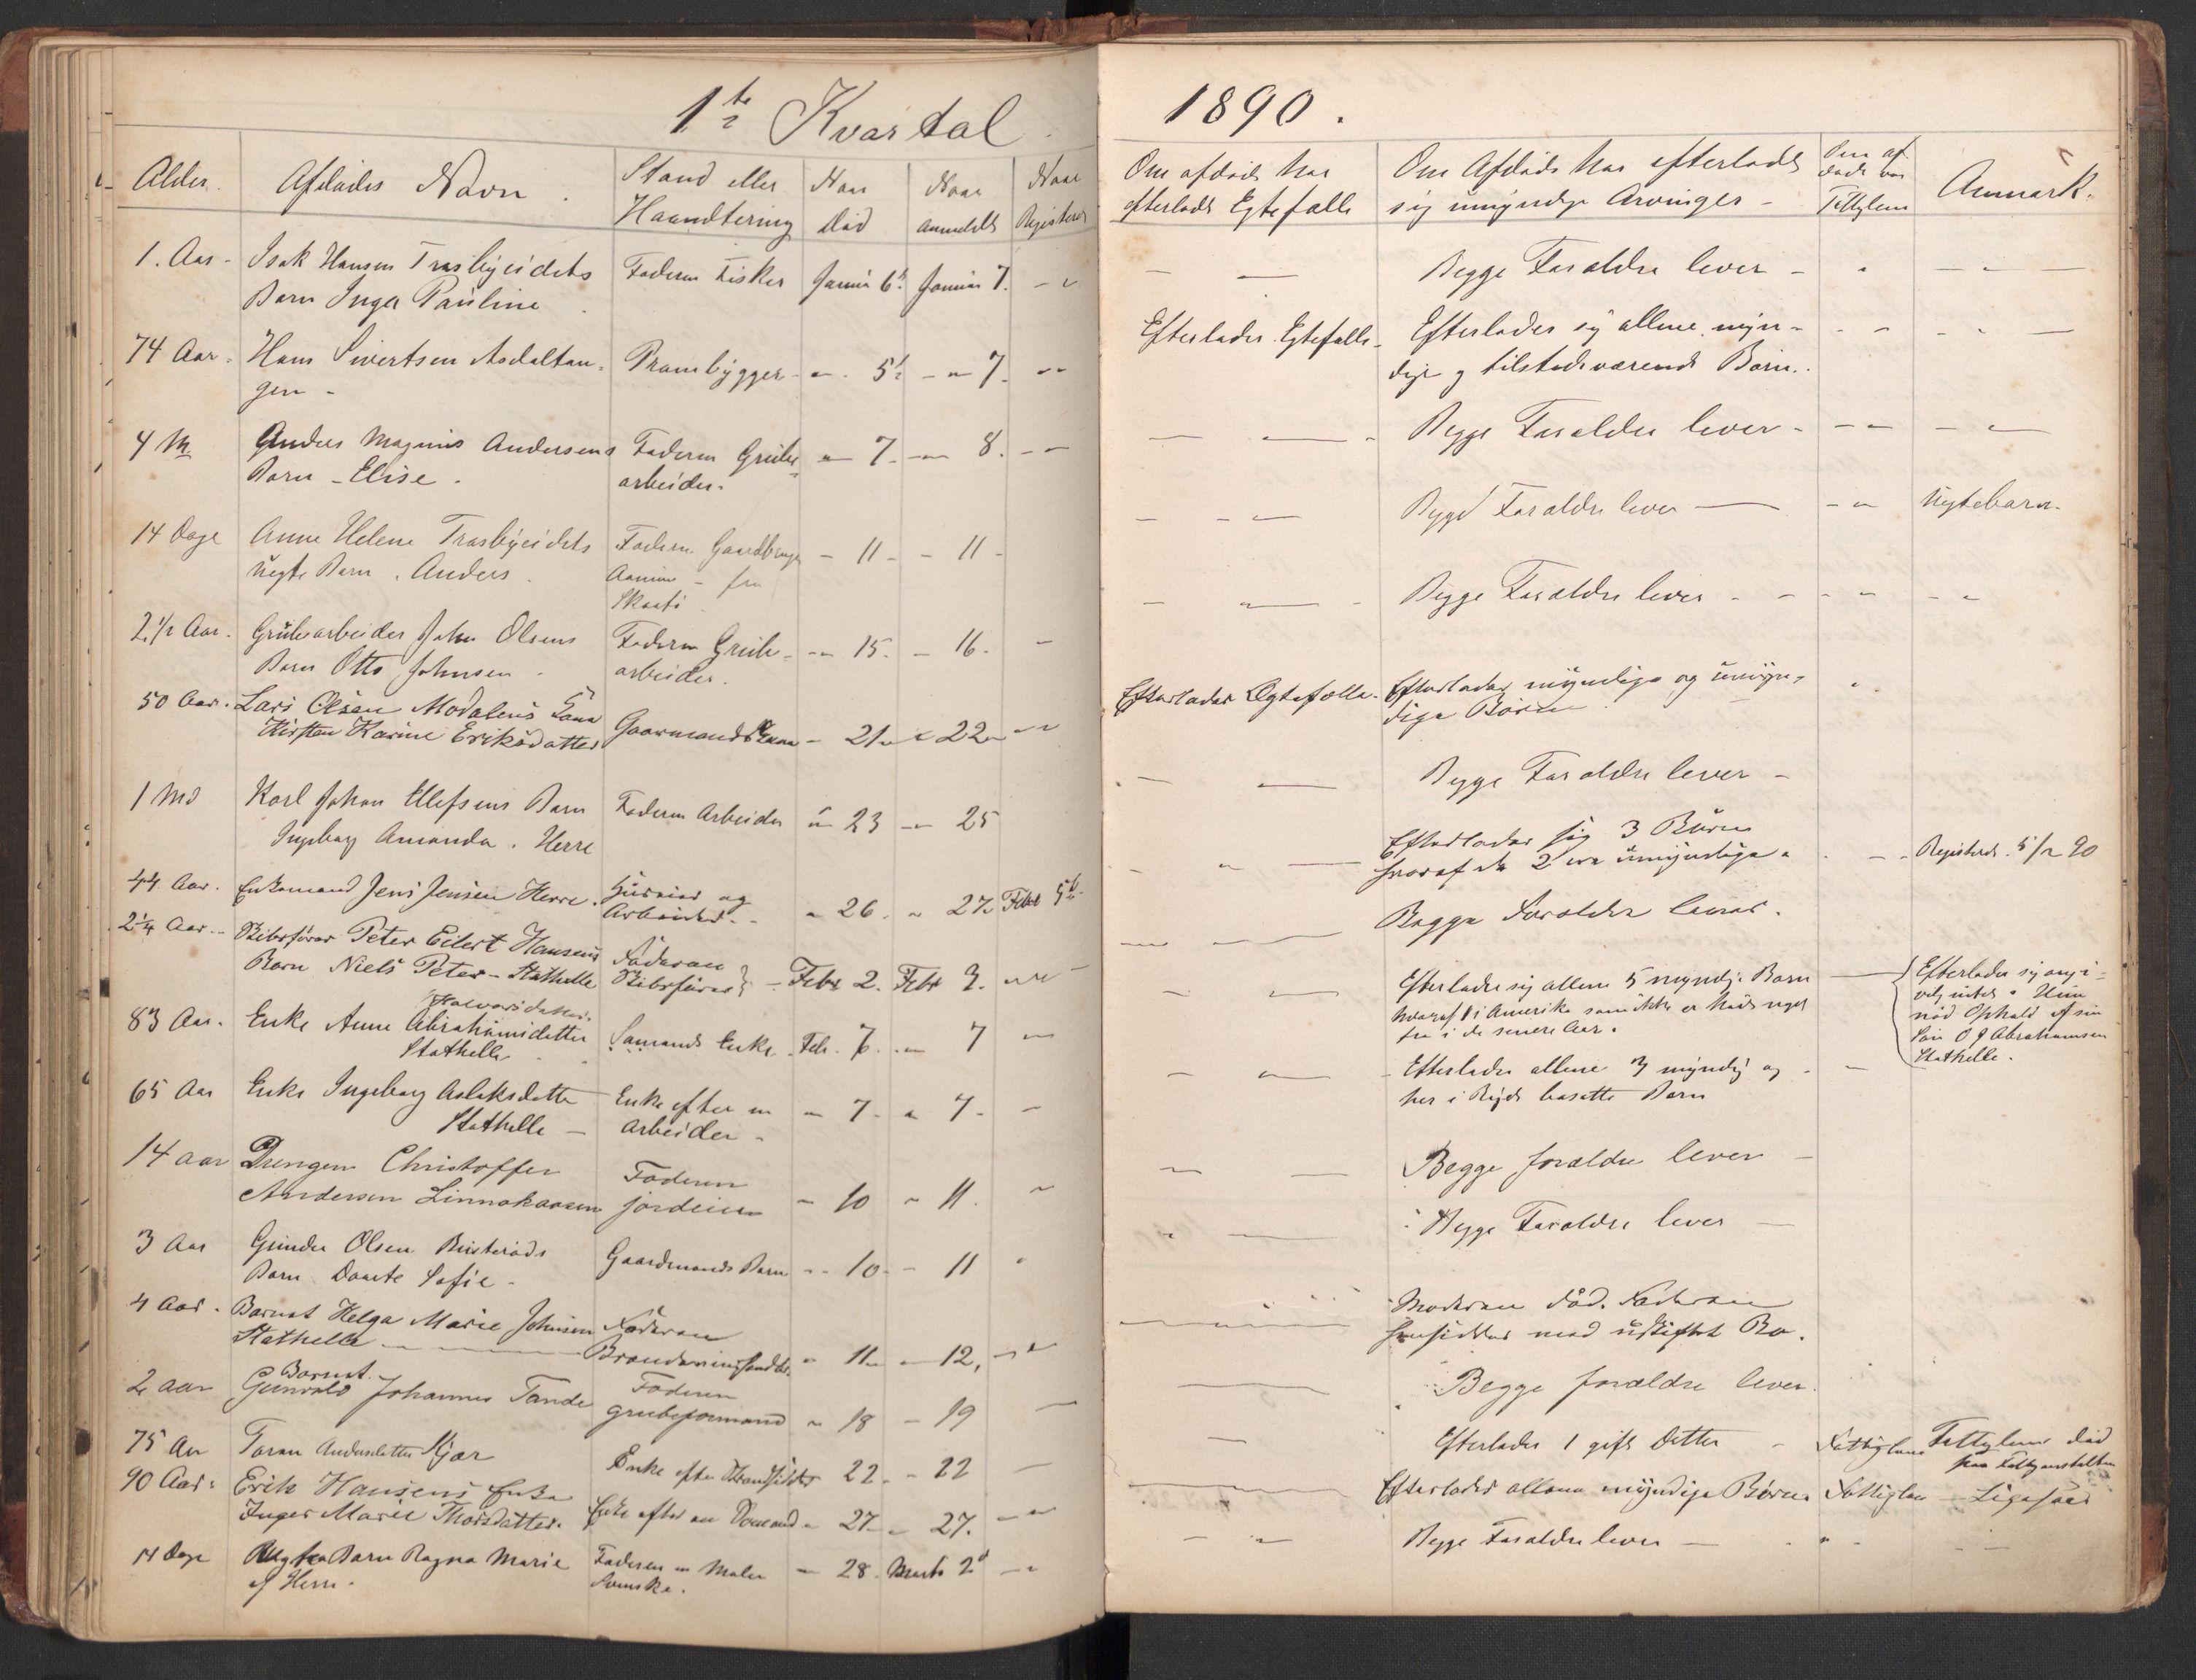 1te Kvartal
1890.
Alder. Afdødes Navn. Stand eller Haandtering Naar Død Naar anmeldt Naar Registeret Om afdøde har efterladt Egtefælle Om Afdøde har efterladt sig umyndige Arvinger - Om afdøde var Fattiglem Anmærk.
1. Aar - Isak Hansen Trasbyeidets Faderen Fisker Januar 6te Januar 7. Begge Forældre lever -
Barn Inga Pauline
74 Aar. Hans Sivertsen Asdaltan- Prambygger - 5te - 7. Efterlader Egtefælle. Efterlader sig allene myn-
gen - dige og tilstedeværende Børn.
4 M. Anders Magnus Andersens Faderen Grube 7. 8. Begge Forældre lever -
Barn - Elise. arbeider.
14 Dage Anne Helene Trasbyeidets Faderen Gaardbruger - 11 - 11 - Begge Forældre lever Uægtebarn.
uægte Barn. Anders. Aanund - fra
Skaati
2 1/2 Aar. Grubearbeider John Olsens Faderen Grube- 15. - 16. Begge Forældre lever -
Barn Otto Johnsen - arbeider.
50 Aar. Lars Olsen Modalens Kone Gaarmands Kone - 21 22 Efterlader Ægtefælle. Efterlader myndige og umyn-
Kirsten Karine Eriksdatter dige Børn
1 Md Karl Johan Ellefsens Barn Faderen Arbeider 23 25 Begge Forældre lever -
Ingeborg Amanda. Herre
44 Aar. Enkemand Jens Jensen Herre. Huseier og 26. 27. Febr 5te Efterlader sig 3 Børn Registeret 5/2 90
Arbeider. hvoraf de 2 ere umyndige.
2 1/4 Aar. Peter Eilert Hansens Faderen Febr 2. Febr 3. Begge Forælder lever.
Barn Niels Peter - Stathelle
Halvorsdatter.
83 Aar. Enke Anne Abrahamsdatter Sømands Enke. Feb. 7. 7 Efterlader sig allene 5 myndige Børn Efterlader sig
Stathelle hvoraf 1 i Amerika som ikke er hørt noget intet. Hun
fra i de senere Aar. nød Ophold af sin
Søn O J Abrahamsen
Stathelle.
65 Aar Enke Ingeborg Aslaksdatter Enke efter en 7. 7. Efterlader allene 3 myndige og
Stathelle - Arbeider - her i Bygd bosatte Børn
14 aar Drengen Christoffer Faderen 10 11. Begge forældre lever -
Andersen Linnakaasen jordeier
3 Aar Gunder Olsen Busterøds Gaardmands Barn 10. 11 Begge Forældre lever
Barn Dorte Sofie -
4 Aar. Barnet Helga Marie Johnsen Faderen 11 12, Moderen død. Faderen
Stathelle hensidder med uskiftet Bo.
Barnet.
2 aar Gunvald Johannes Tande Faderen 18 - 19 Begge forældre lever.
grubeformand
75 Aar Toran Andersdatter Kjær Enke efter 22. - 22 Efterlader 1 gift Datter - Fattiglem Fattiglem død
paa Fattiganstalten
90 Aar. Erik Hansens Enke Enke efter en 27. 27. Efterlader allene myndige Børn Fattiglem Ligesaa
Inger Marie Thorsdatter.
14 Dage Uægte Barn Ragna Marie Faderen en Maler 28. Marts 2d Begge Forældre lever
af Herre. Svenske.